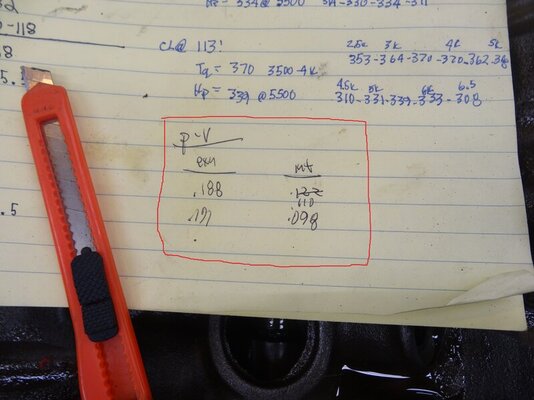 32
Hp = 334 @ 5500 311-330-334-311
0-118
18
CL@ 113:
2.5k 3k 4k 5k
353-364-370-370-362-
Tq = 370 3500-4k
4.5k 5k 6k 6.5
Hp = 339 @ 5500 310-331-339-333-308
5.
P-V
exh int
.188 .122
110
.171 .098
.5